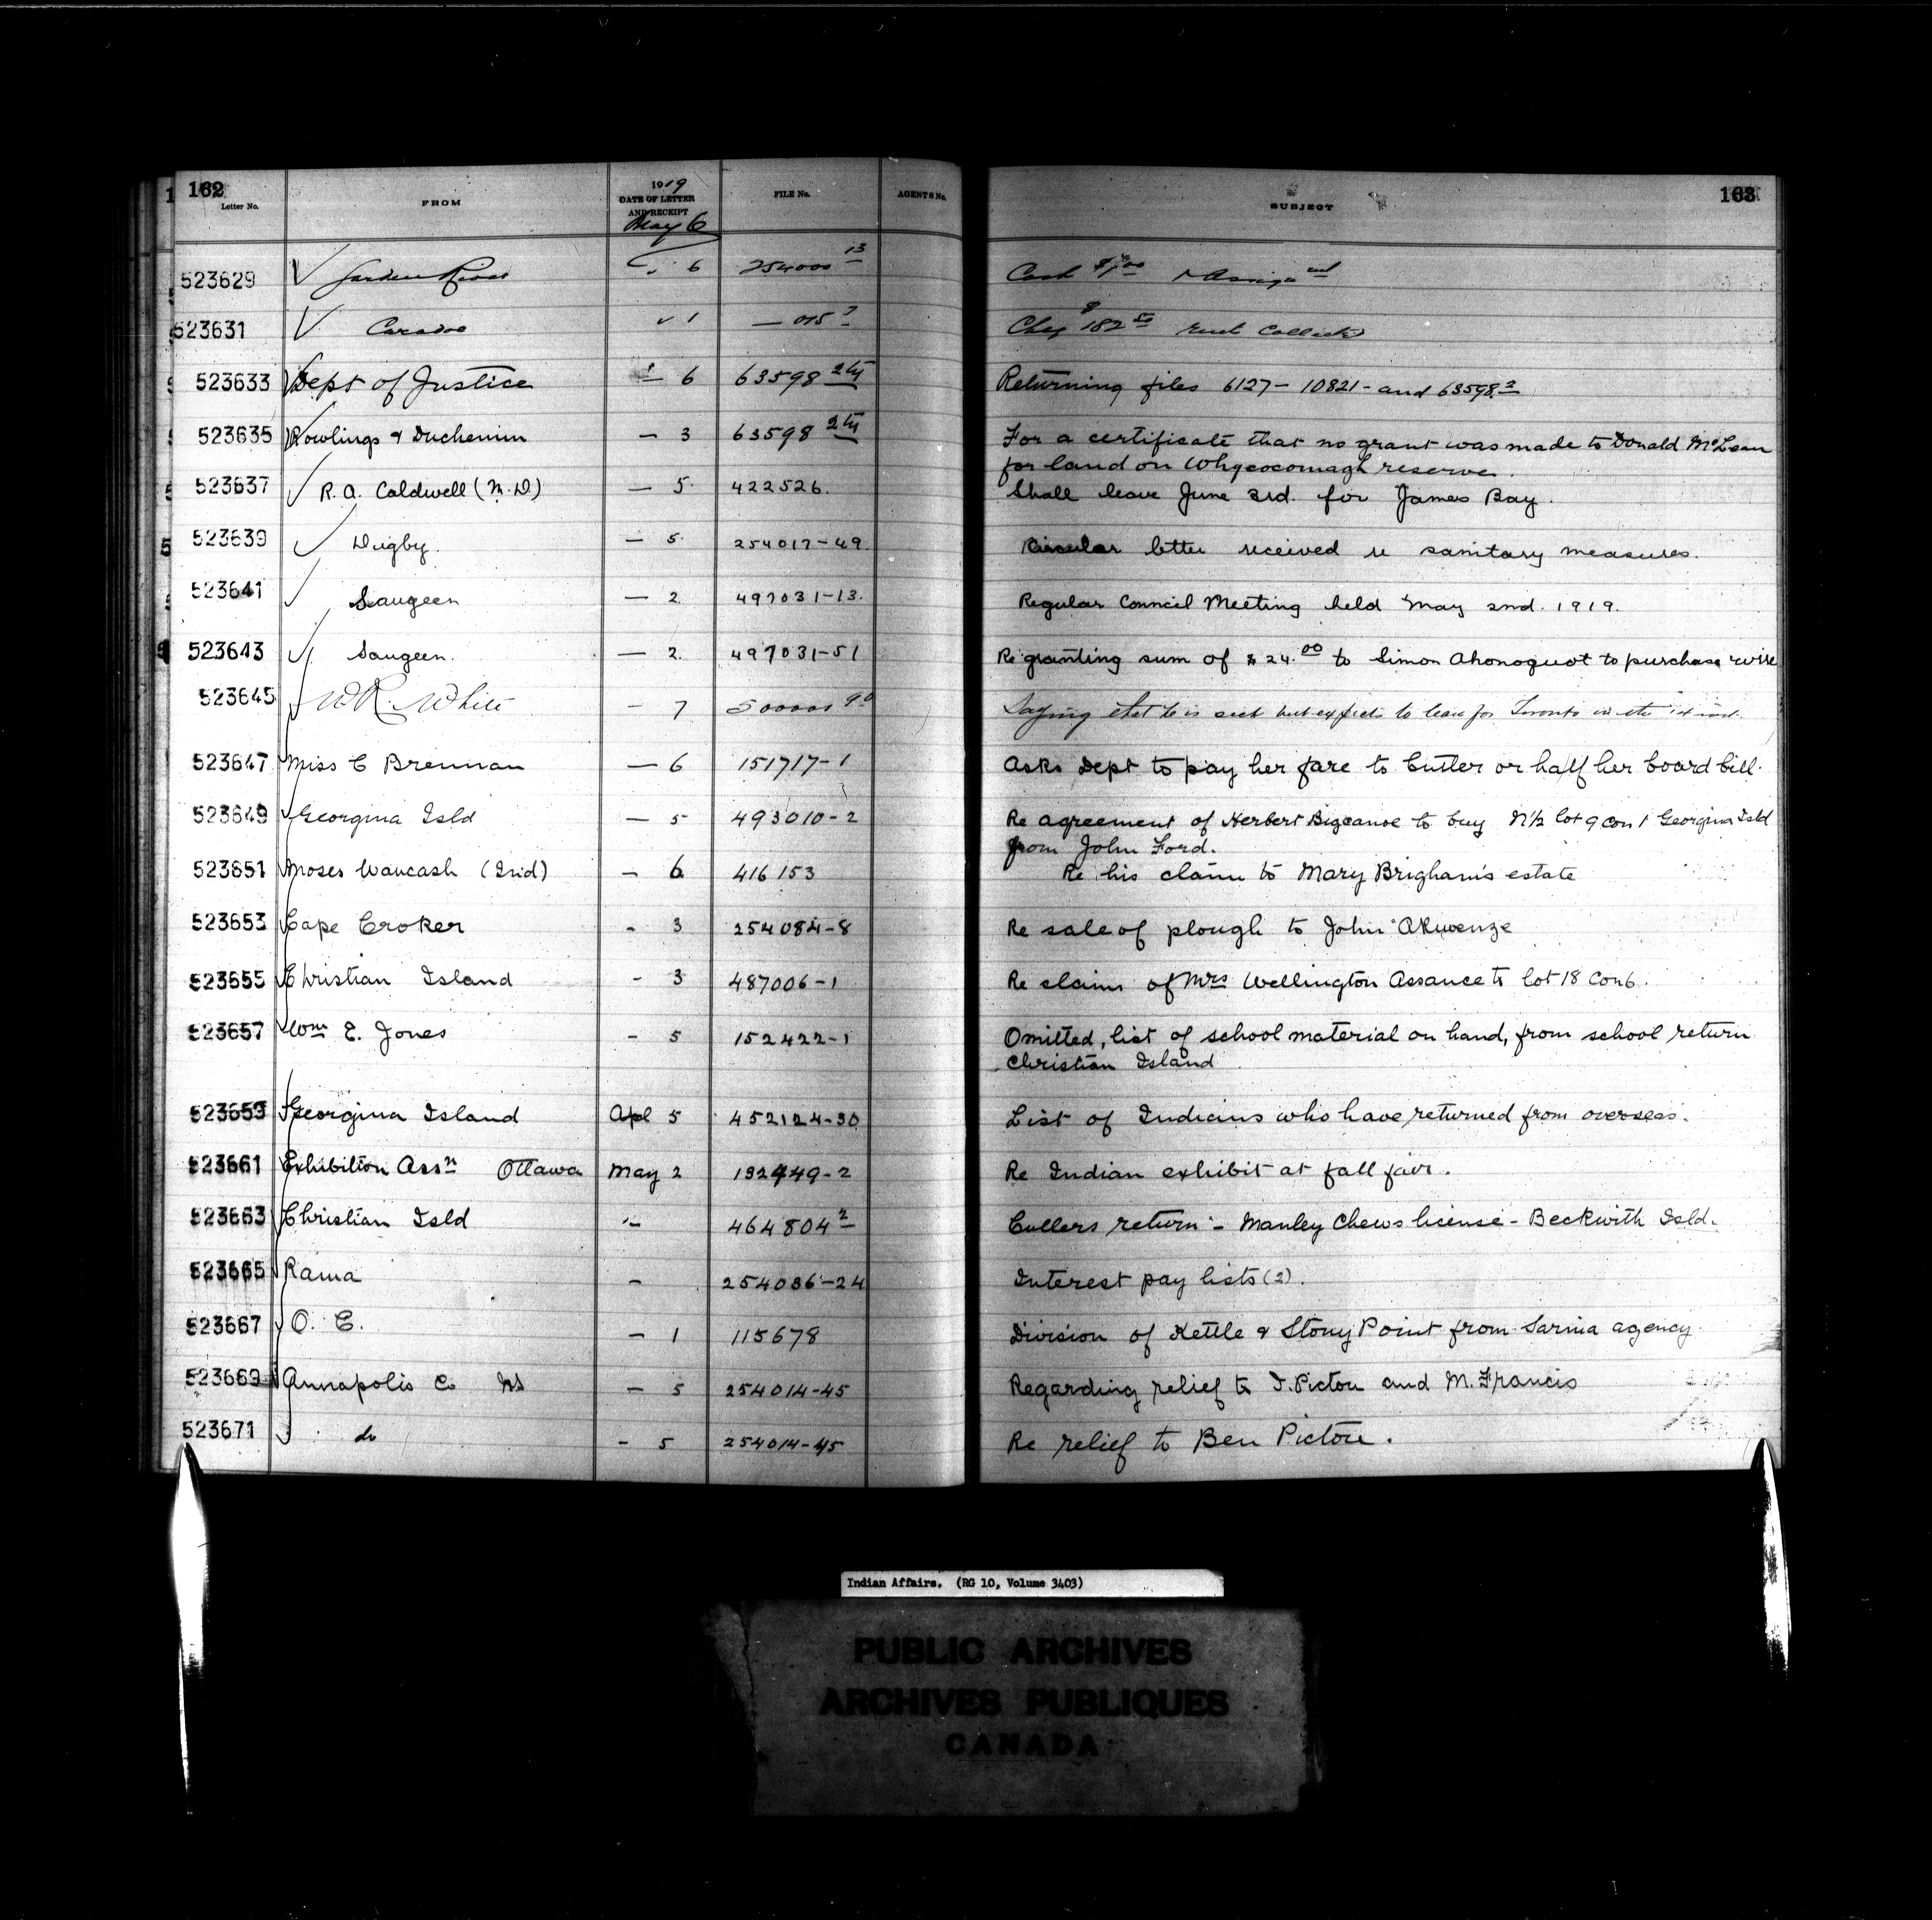 162
Letter No. FROM 1919 DATE OF LETTER AND RECEIPT FILE No. AGENTS No. SUBJECT 163
May 6
523629 Garden River 6 254000 13 Cash $1.00 Assign
523631 Caradoc 1 — 015 Cheq $182 Rent Collected
523633 Dept of Justice 6 63598 Returning files 6127 - 10821 - and 63598.2
523635 Rowlings & Duchemin — 3 63598 For a certificate that no grant was made to Donald McLean
for land on Whycocomagh reserve.
523637 R. A. Caldwell (M.D.) — 5 422526. Shall leave June 3rd. for James Bay.
523639 Digby. — 5 254017-49. Circular letter received re sanitary measures.
523641 Saugeen — 2. 497031-13. Regular Council Meeting held May 2nd. 1919.
523643 Saugeen. — 2. 497031-51 Re granting sum of $24.00 to Simon Ahonoquot to purchase wire
523645 W R. White — 7 Saying that he is sick but expects to leave for Toronto in the
523647 Miss C Brennan — 6 151717-1 Asks Dept to pay her fare to Cutler or half her board bill.
523649 Georgina Isld — 5 493010-2 Re agreement of Herbert Bigcanoe to buy N½ lot 9 con 1 Georgina Isld
from John Ford.
523651 Moses Waucash (Ind) — 6 416153 Re his claim to Mary Brigham's estate
523653 Cape Croker - 3 254084-8 Re sale of plough to John Akwenze
523655 Christian Island - 3 487006-1 Re claim of Mrs Wellington Assance to lot 18 Con 6.
523657 Wm E. Jones - 5 152422-1 Omitted, list of school material on hand, from school return
Christian Island
523659 Georgina Island Apl 5 452124-30 List of Indians who have returned from overseas.
523661 Exhibition Assn Ottawa May 2 132449-2 Re Indian exhibit at fall fair.
523663 Christian Isld - 464804 2 Cullers return - Manley Chews license - Beckwith Isld.
523665 Rama - 254036-24 Interest pay lists (2).
523667 O. C. - 1 115678 Division of Kettle & Stony Point from Sarnia agency.
523669 Annapolis Co NS — 5 254014-45 Regarding relief to J. Pictou and M. Francis
523671 do - 5 254014-45 Re relief to Ben Pictou.
Indian Affairs. (RG 10, Volume 3403)
PUBLIC ARCHIVES
ARCHIVES PUBLIQUES
CANADA